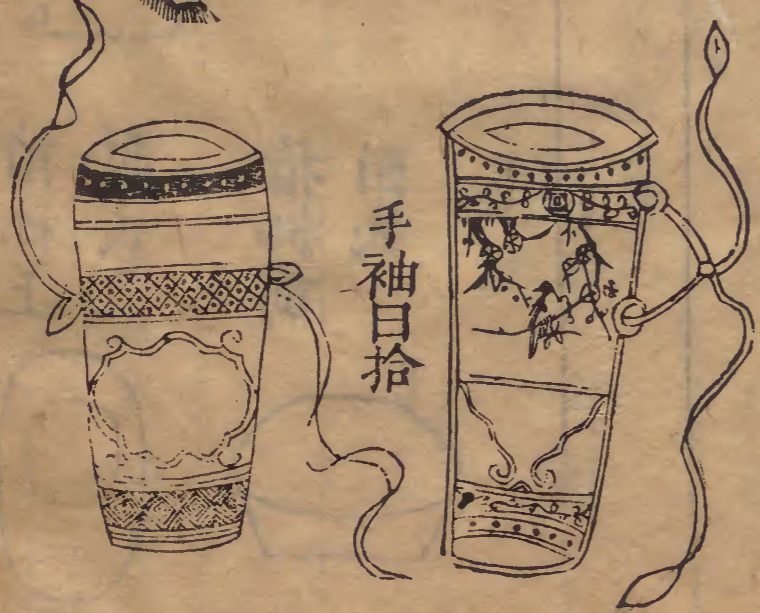 手袖曰拾